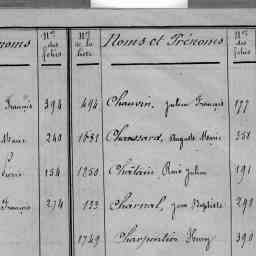 noms Nos des folios Nos de la liste Noms et Prénoms Nos des folios
François 394 494 Chauvin, Julien François 177
Marie 240 1081 Chaussard, Auguste Marie 358
Louis 154 1250 Châtain, René Julien 191
François 274 123 Charnal, Jean Baptiste 290
1749 Charpentier Henry 390